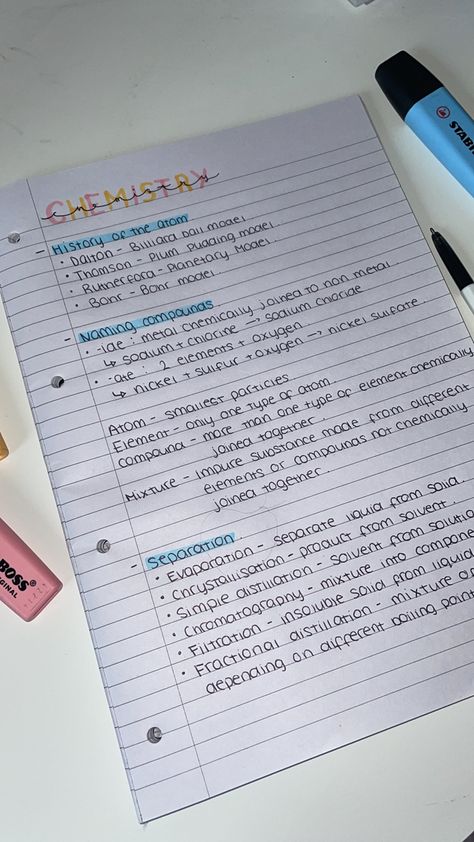 CHEMISTRY
chemistry
- History of the atom
• Dalton - Billiard ball model
• Thomson - Plum Pudding model.
• Rutherford - Planetary Model.
• Bohr - Bohr model.
- Naming compounds
• -ide : metal chemically joined to non metal.
↳ sodium + chlorine → sodium chloride
• -ate : 2 elements + oxygen.
↳ nickel + sulfur + oxygen → nickel sulfate.
Atom - smallest particles
Element - only one type of atom.
compound - more than one type of element chemically
joined together.
Mixture - impure substance made from different
elements or compounds not chemically
joined together.
- Separation.
• Evaporation - separate liquid from solid.
• Chrystallisation - product from solvent.
• Simple distillation - solvent from solution
• Chromatography - mixture into
• Filtration - insoluble solid from liquid
• Fractional distillation - mixture
depending on different boiling
STABILO
BOSS
ORIGINAL